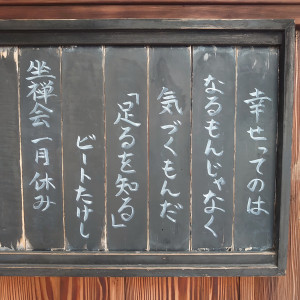 幸せってのは
なるもんじゃなく
気づくもんだ
「足るを知る」
ビートたけし
坐禅会一月休み